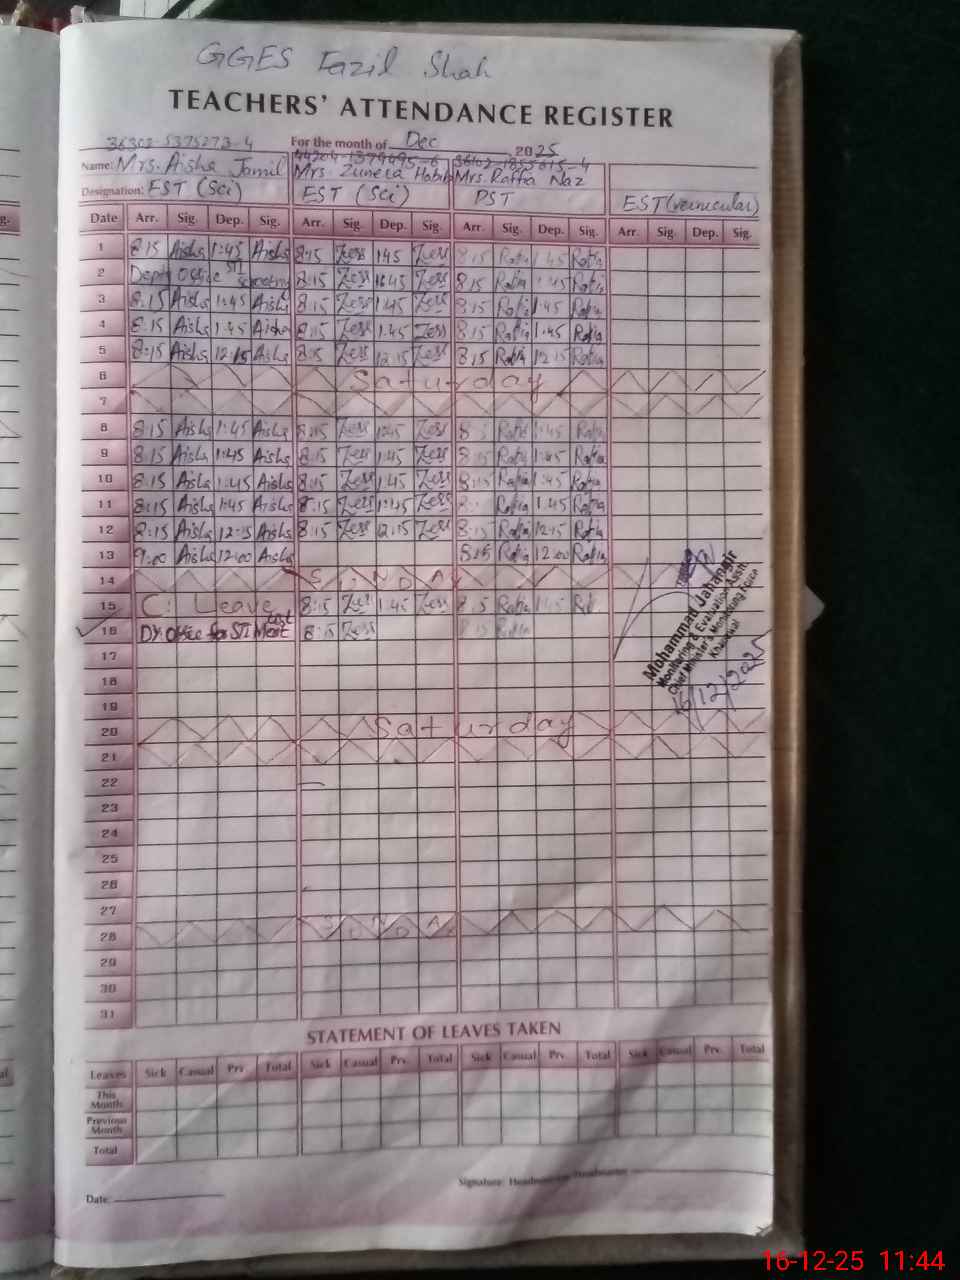 GGES Fazil Shah
TEACHERS' ATTENDANCE REGISTER
36302-5375273-4 For the month of Dec 2025
Name: Mrs. Aisha Jamil Mrs. Zunera Habib Mrs. Raffia Naz
Designation: EST (Sci) EST (Sci) PST EST (vernicular)
Date Arr. Sig. Dep. Sig. Arr. Sig. Dep. Sig. Arr. Sig. Dep. Sig. Arr. Sig. Dep. Sig.
1 8:15 Aisha 1:45 Aisha 8:15 1:45 8:15 Rafia 1:45 Rafia
2 Office 8:15 1:45 8:15 Rafia 1:45 Rafia
3 8:15 Aisha 1:45 Aisha 8:15 1:45 8:15 Rafia 1:45 Rafia
4 8:15 Aisha 1:45 Aisha 8:15 1:45 8:15 Rafia 1:45 Rafia
5 8:15 Aisha 12:15 Aisha 8:15 12:15 8:15 Rafia 12:15 Rafia
6 Saturday
7
8 8:15 Aisha 1:45 Aisha 8:15 1:45 Rafia 1:45 Rafia
9 8:15 Aisha 1:45 Aisha 8:15 1:45 8:15 Rafia 1:45 Rafia
10 8:15 Aisha 1:45 Aisha 8:15 1:45 8:15 Rafia 1:45 Rafia
11 8:15 Aisha 1:45 Aisha 8:15 1:45 Rafia 1:45 Rafia
12 8:15 Aisha 12:15 Aisha 8:15 12:15 8:15 Rafia 12:15 Rafia
13 9:00 Aisha 12:00 Aisha 8:15 Rafia 12:00 Rafia
14 SUNDAY
15 C: Leave 8:15 1:45 8:15 Rafia 1:45
16 Dy. Office for STI Merit list 8:15 8:15 Rafia
17
18
19
20 Saturday
21
22
23
24
25
26
27
28 SUNDA
29
30
31
Mohammad Jahangir
Monitoring & Evaluation Asstt.
Chief Minister's Monitoring Force
Khanewal
16/12/2025
STATEMENT OF LEAVES TAKEN
Leaves Sick Casual Prv. Total Sick Casual Prv. Total Sick Casual Prv. Total Sick Casual Prv. Total
This Month
Previous Month
Total
Signature: Headmistress/Headmaster
Date:
16-12-25 11:44